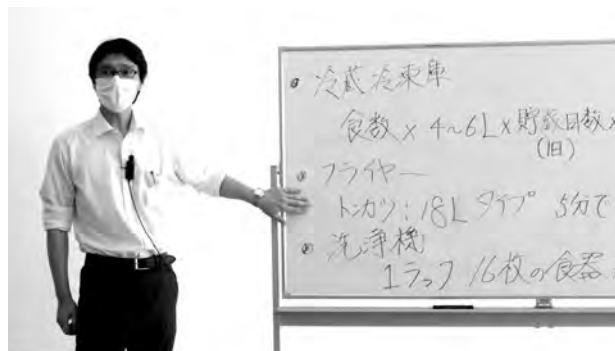 ・冷蔵冷凍庫
食数×4~6L×貯蔵日数×
(1日)
・フライヤー
トンカツ:18Lタイプ 5分で
・洗浄機
1ラック 16枚の食器